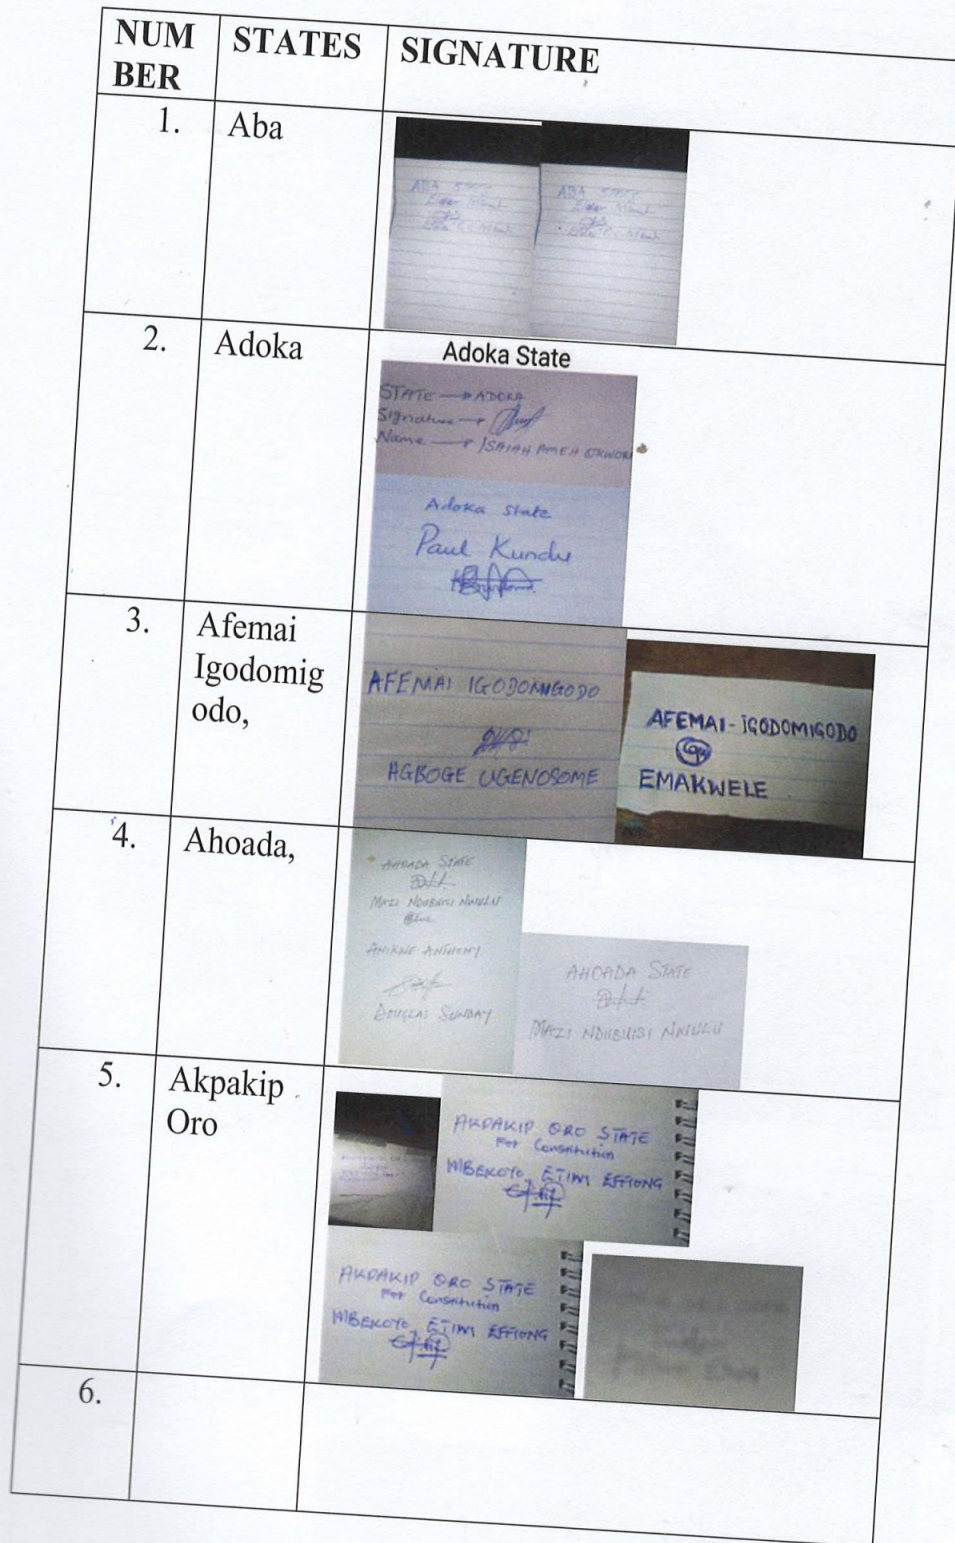 NUM STATES SIGNATURE
BER
1. Aba
ABA STATE
ABA STATE
2. Adoka
Adoka State
STATE → ADOKA
Signature →
Name → ISAIAH AMEH EKWORI
Adoka state
Paul Kundu
3. Afemai
Igodomig
odo,
AFEMAI IGODOMIGODO
AGBOGE UGENOSOME
AFEMAI-IGODOMIGODO
EMAKWELE
4. Ahoada,
AHOADA STATE
MAZI NDUBUISI NWULU
ANTHONY
DOUGLAS SUNDAY
AHOADA STATE
MAZI NDUBUISI NWULU
5. Akpakip
Oro
AKPAKIP ORO STATE
For Constitution
MBEKOYO, ETIM EFFIONG
AKPAKIP ORO STATE
For Constitution
MBEKOYO, ETIM EFFIONG
6.